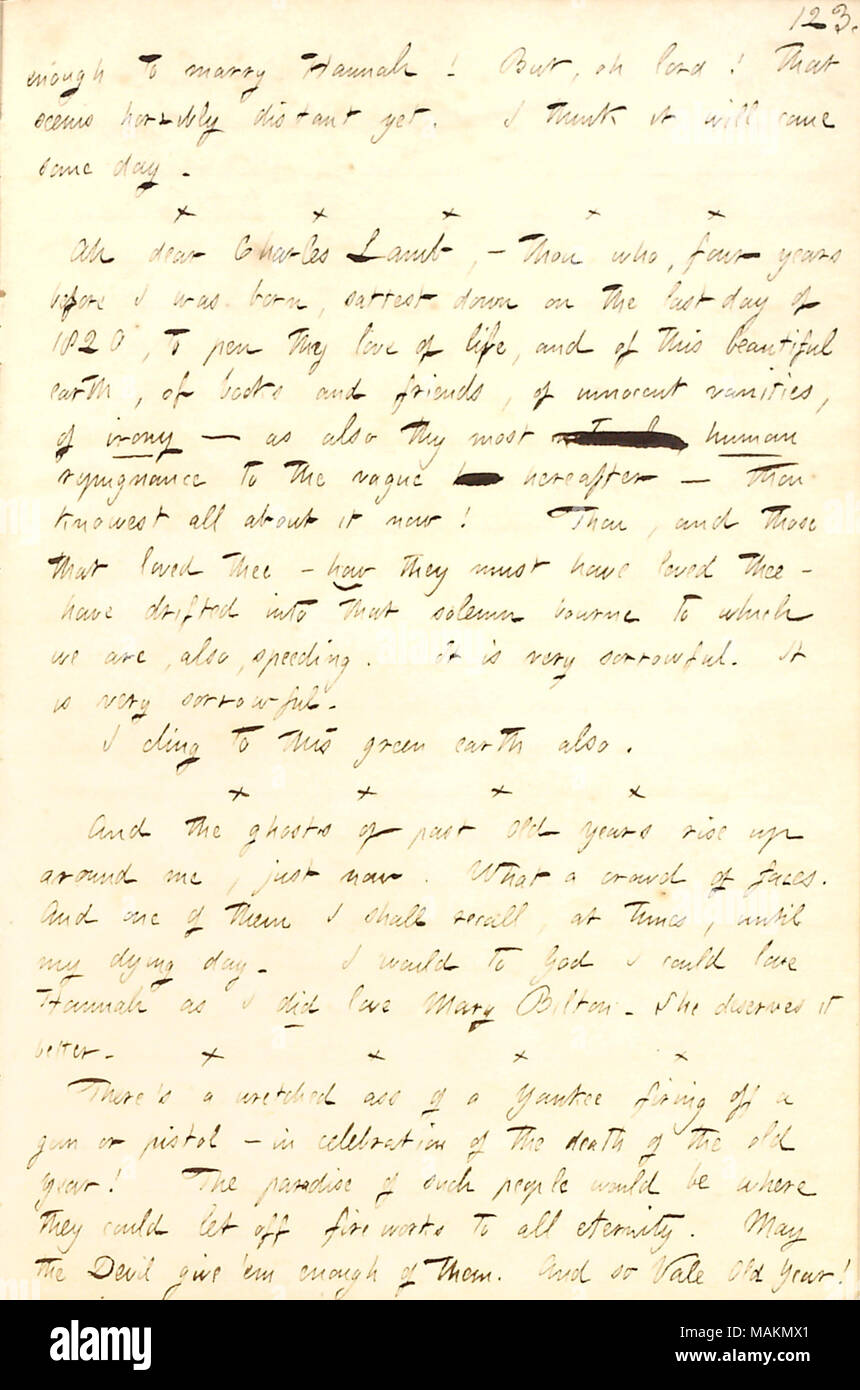 123.
enough to marry Hannah! But, oh lord! that
seems horribly distant yet. I think it will come
some day.
+ + + + +
Ah dear Charles Lamb, — thou who, four years
before I was born, sattest down on the last day of
1820, to pen thy love of life, and of this beautiful
earth, of books and friends, of innocent vanities,
of irony — as also thy most human
repugnance to the vague hereafter — thou
knowest all about it now! Thou, and those
that loved thee — how they must have loved thee —
have drifted into that solemn bourne to which
we are, also, speeding. It is very sorrowful. It
is very sorrowful.
I cling to this green earth also.
+ + + +
And the ghosts of past Old years rise up
around me, just now. What a crowd of faces.
And one of them I shall recall, at times, until
my dying day. I would to God I could love
Hannah as I did love Mary Bilton. She deserves it
better. + + + +
There's a wretched ass of a Yankee firing off a
gun or pistol — in celebration of the death of the old
year! The paradise of such people would be where
they could let off fireworks to all eternity. May
the Devil give 'em enough of them. And so Vale Old Year!
alamy
Image ID: MAKMX1
www.alamy.com